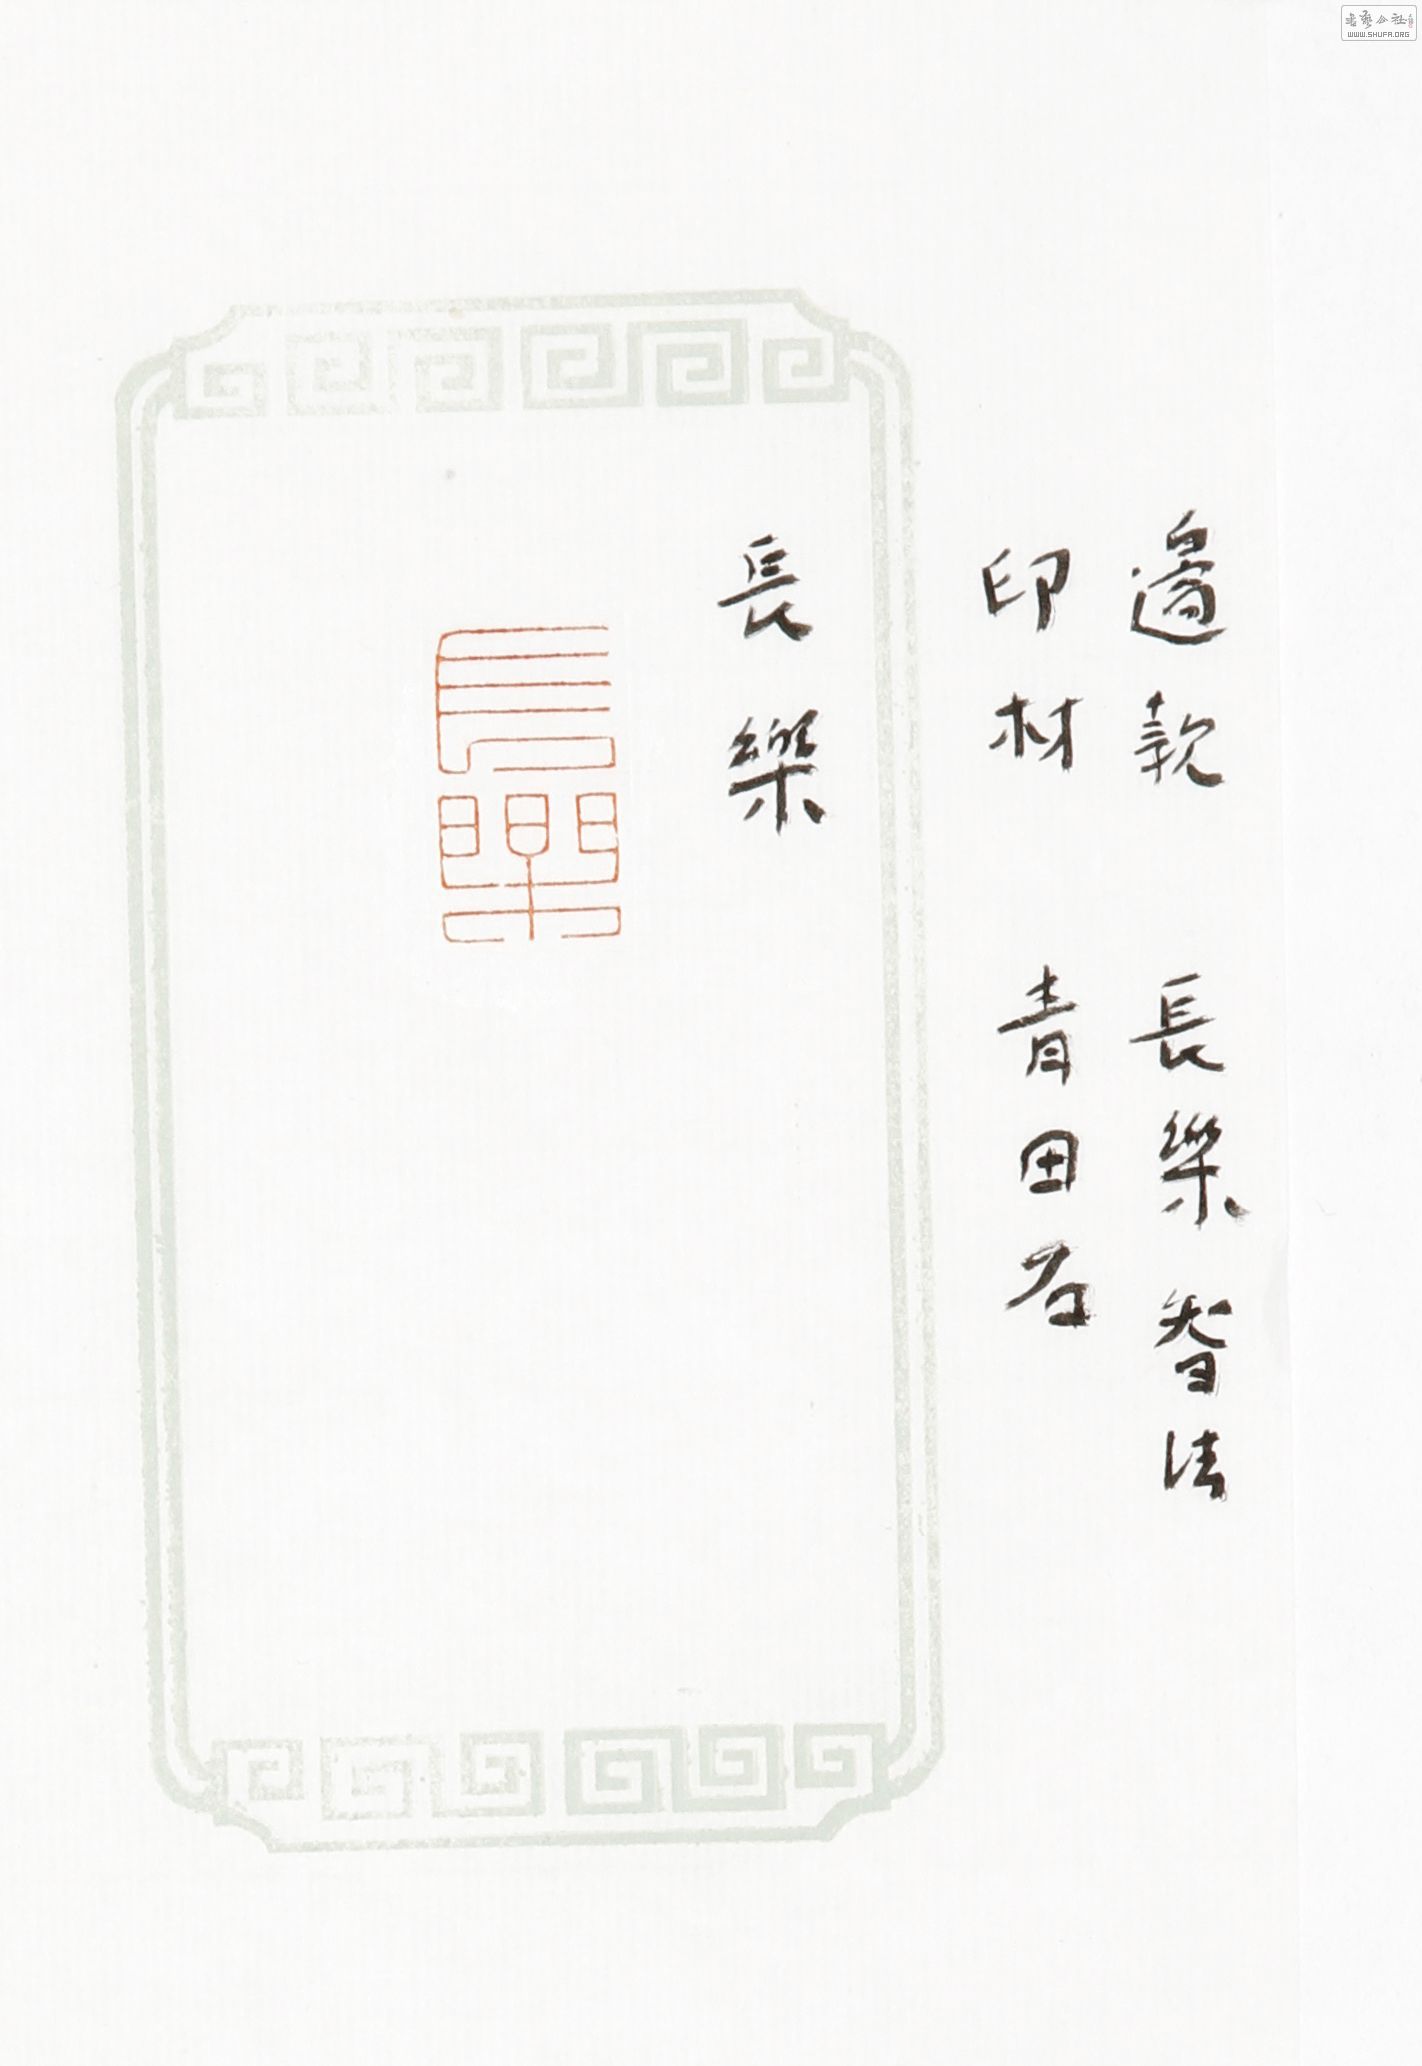 邊款 長樂 智法
印材 青田石
長樂
長樂
書法公社
WWW.SHUFA.ORG